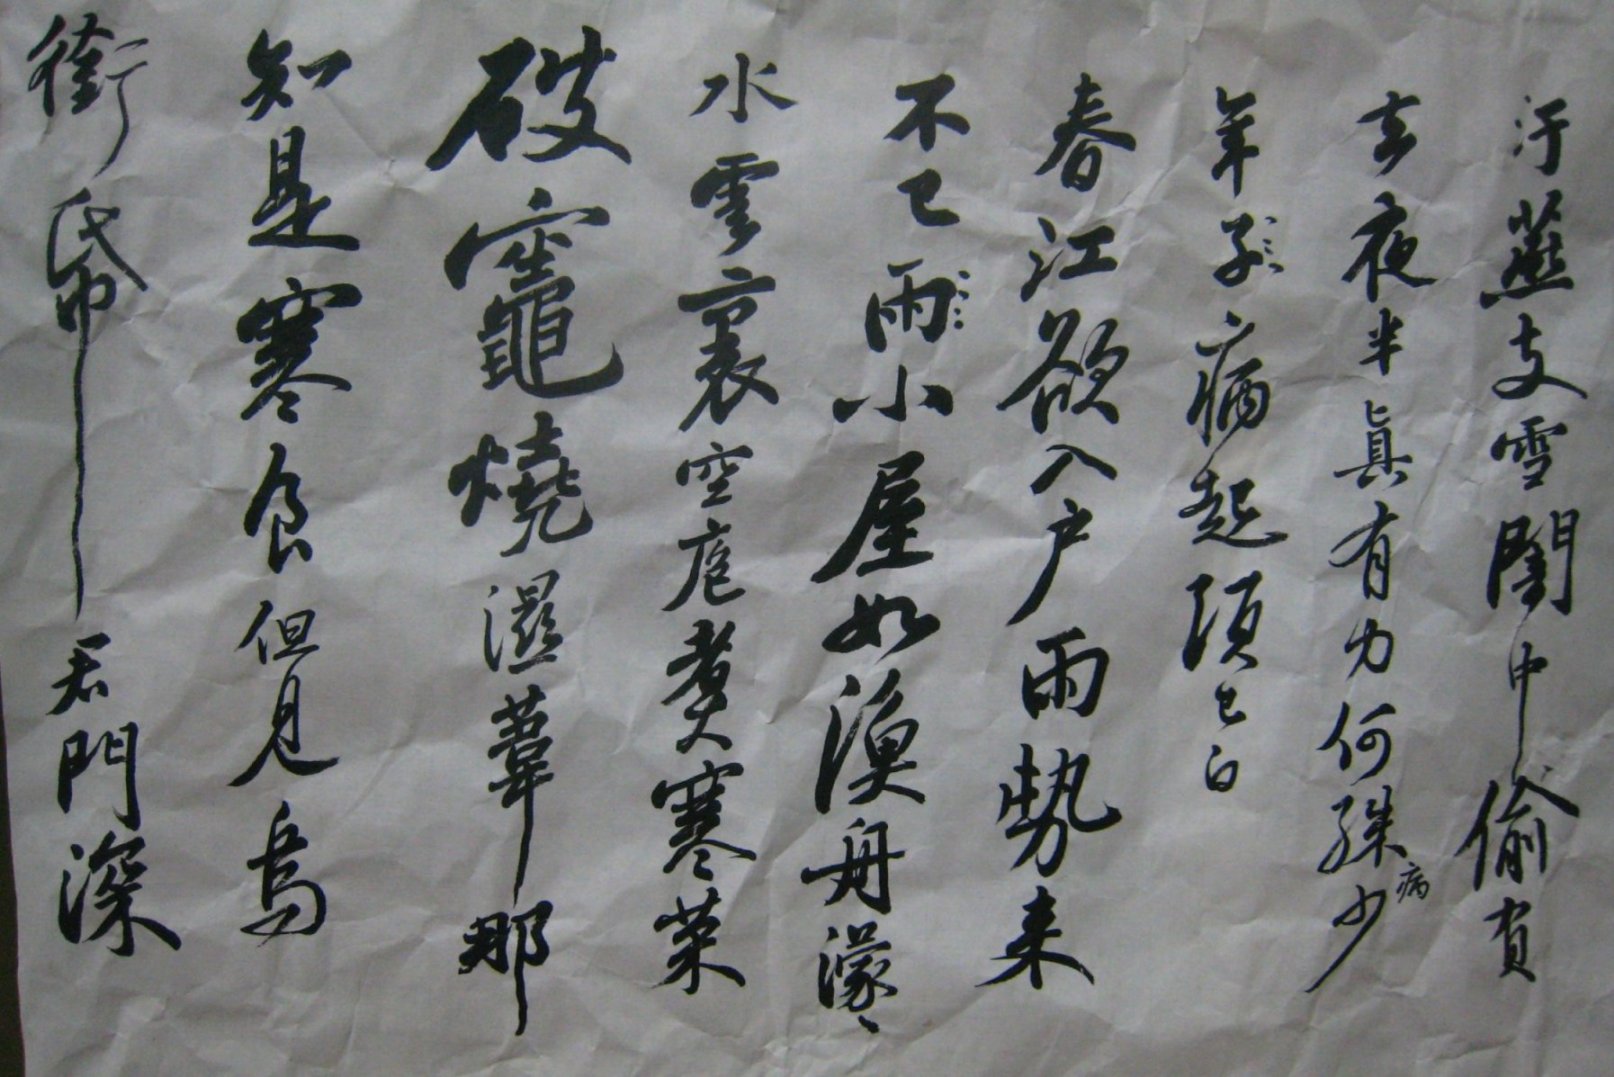 汙燕支雪闇中偷負
去夜半眞有力何殊病少
年子病起須已白
春江欲入戶雨勢来
不已雨小屋如漁舟濛〻
水雲裏空庖煑寒菜
破竈燒濕葦那
知是寒食但見烏
銜帋君門深